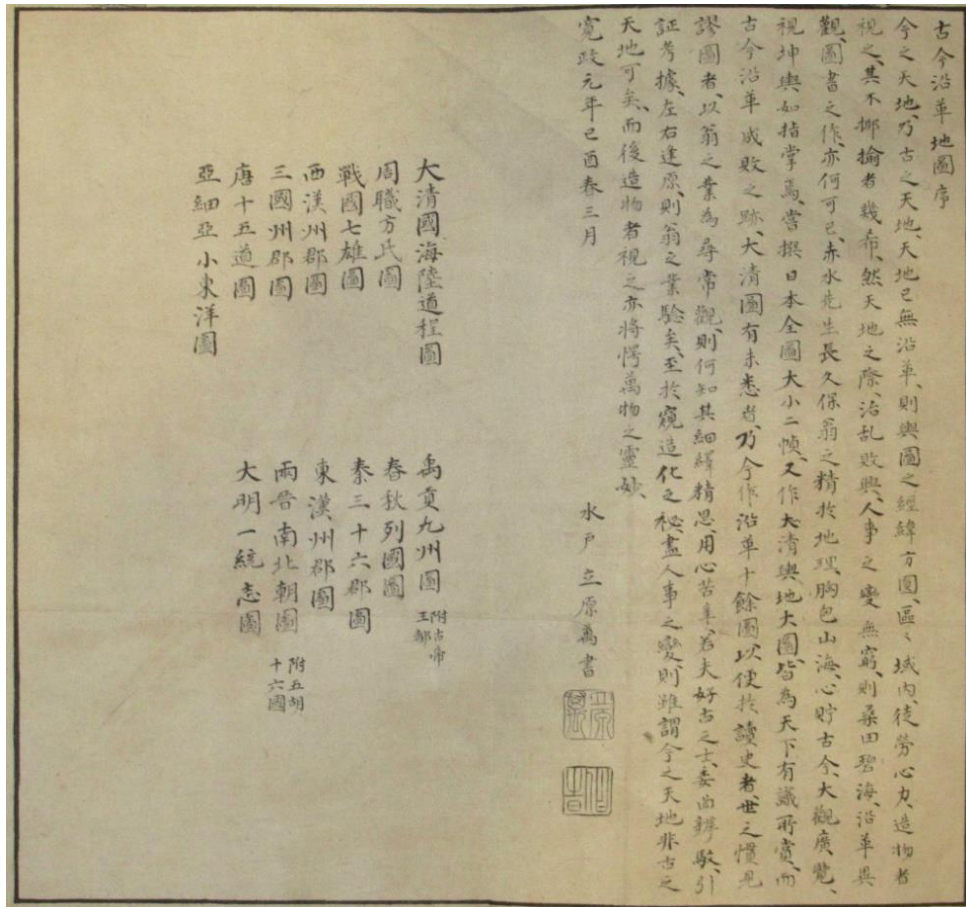 古今沿革地圖序
今之天地、乃古之天地、天地已無沿革、則輿圖之經緯方圓、區〻域内、徒勞心力、造物者
視之、其不揶揄者幾希、然天地之際、治乱敗興、人事之變無窮、則桑田碧海、沿革異
觀、圖書之作、亦何可已、赤水先生長久保翁之精於地理、胸包山海、心貯古今、大觀廣覽、
視坤輿如指掌焉、嘗撰日本全圖大小二幀、又作大清輿地大圖、皆為天下有識所賞、而
古今沿革成敗之跡、大清圖有未悉者、乃今作沿革十餘圖、以便於讀史者、世之慣見
謬圖者、以翁之業為尋常觀、則何知其細繹精思、用心苦辛、若夫好古之士、委曲辨駁、引
証考據、左右逢原、則翁之業驗矣、至於窺造化之秘、盡人事之變、則雖謂今之天地非古之
天地可矣、而後造物者視之、亦將愕萬物之靈妙、
寛政元年己酉春三月
水戸 立原萬書
大清國海陸道程圖
禹貢九州圖 附古帝王都
周職方氏圖
春秋列國圖
戰國七雄圖
秦三十六郡圖
西漢州郡圖
東漢州郡圖
三國州郡圖
兩晉南北朝圖 附五胡十六國
唐十五道圖
大明一統志圖
亞細亞小東洋圖